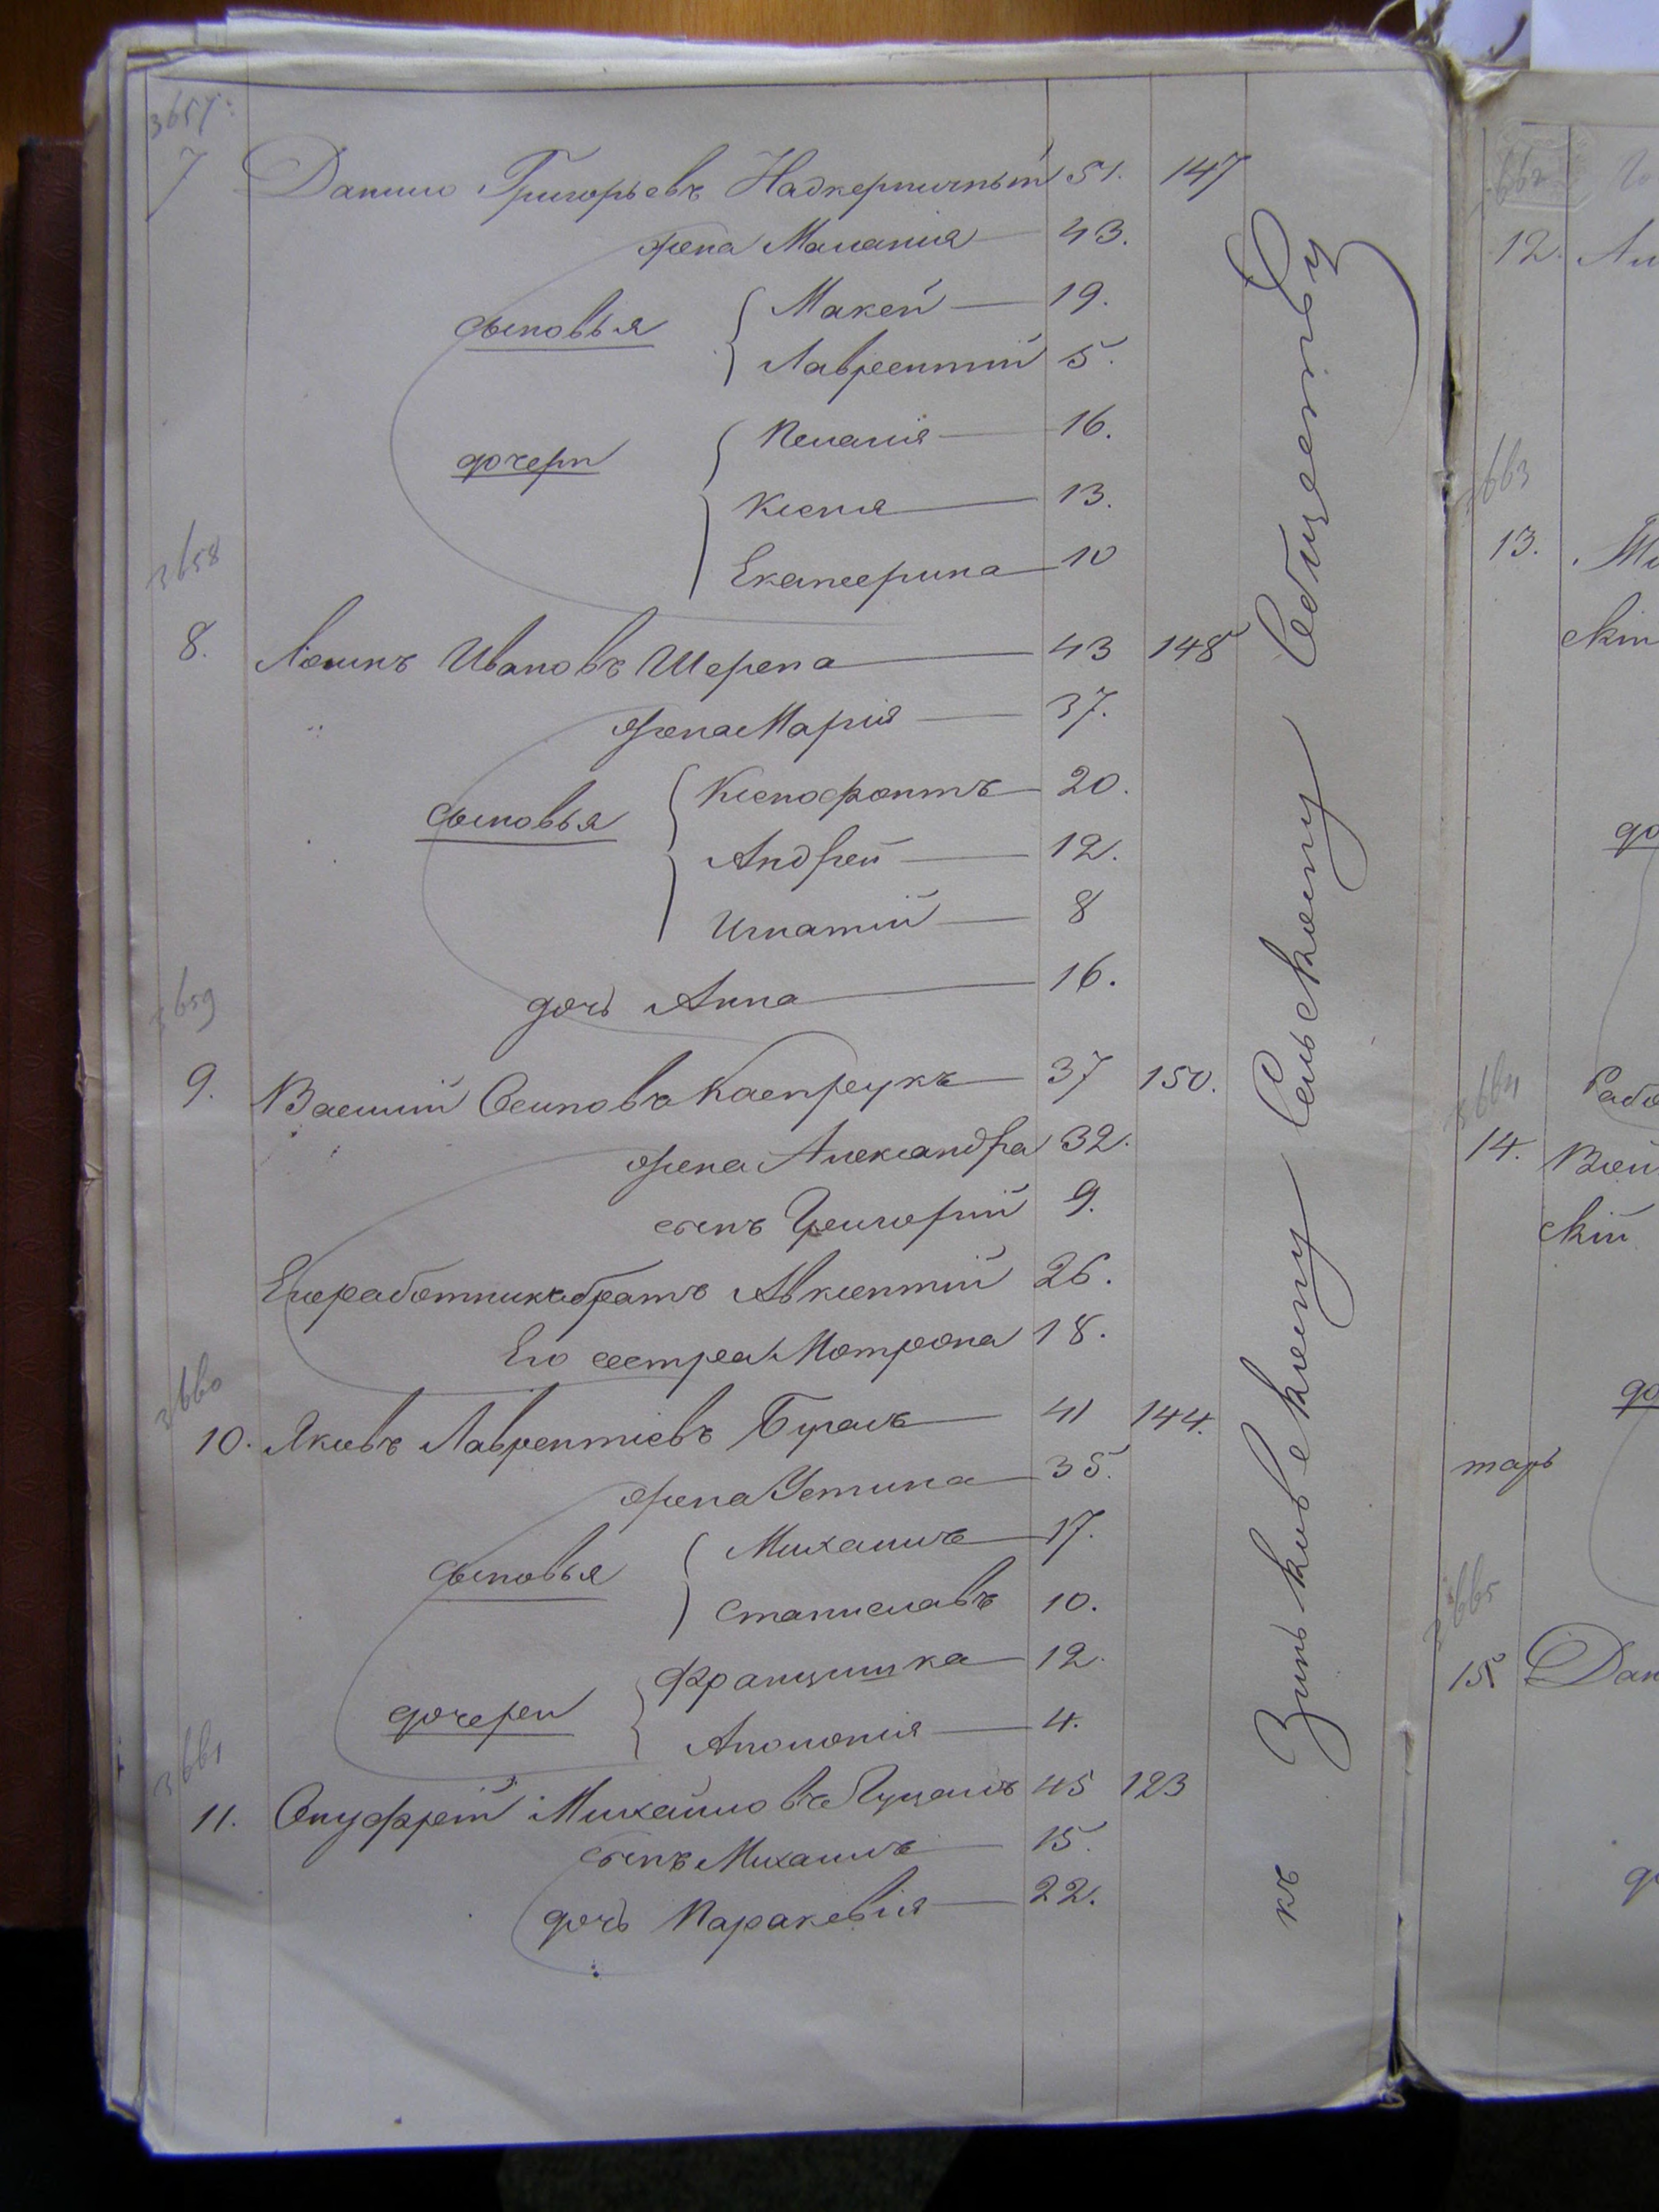 3657.
7 Данило Григорьевъ Надкерничный 51. 147
жена Маланія 43.
сыновья Макей 19.
Лаврентій 5.
дочери Пелагія 16.
Ксенія 13.
Екатерина 10
3658
8. Ивановъ Шерепа 43 148
жена Марія 37.
сыновья Ксенофонтъ 20.
Андрей 12.
Игнатій 8
дочь Анна 16.
3659
9. Василій Осиповъ Каспрукъ 37 150.
жена Александра 32.
сынъ Григорій 9.
Его работникъ братъ Авксентій 26.
Его сестра Мотрона 18.
3660
10. Яковъ Лаврентіевъ 41 144.
жена Устина 35.
сыновья Михаилъ 17.
Станиславъ 10.
дочери Францишка 12.
Аполонія 4.
3661
11. Онуфрій Михайловъ 45 123
сынъ Михаилъ 15.
дочь Параскевія 22.
къ Зиньковскому Сельскому Обществу
3662
12.
3663
13.
скій
до
3664
Рабо
14. Вой
скій
до
тарь
3665
15 Дан